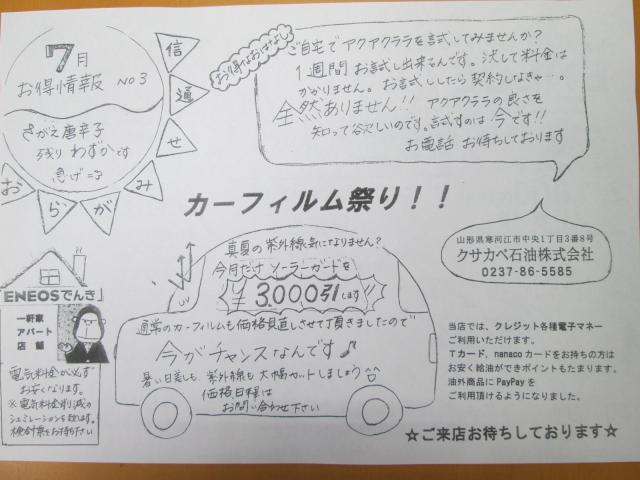 7月
お得情報 NO3
さがえ唐辛子
残り わずかです
急げ=3
おらがみせ通信
お得なおはなし
ご自宅でアクアクララを試してみませんか?
1週間お試し出来るんです。決して料金は
かかりません。お試ししたら契約しなきゃ…。
全然ありません!! アクアクララの良さを
知って欲しいのです。試すのは今です!!
お電話お待ちしております
カーフィルム祭り!!
山形県寒河江市中央1丁目3番8号
クサカベ石油株式会社
0237-86-5585
真夏の紫外線気になりません?
今月だけソーラーガードを
¥3,000引します
通常のカーフィルムも価格見直しさせて頂きましたので
今がチャンスなんです♪
暑い日差しも、紫外線も大幅カットしましょう^^
価格日程は
お問い合わせ下さい
UV
「ENEOSでんき」
一軒家
アパート
店舗
電気料金が必ず
お安くなります。
※電気料金削減の
シュミレーションを致します。
検針票をお持ち下さい
当店では、クレジット各種電子マネー
ご利用いただけます。
Tカード、nanacoカードをお持ちの方は
お安く給油ができポイントもたまります。
油外商品にPayPayを
ご利用頂けるようになりました。
☆ご来店お待ちしております☆